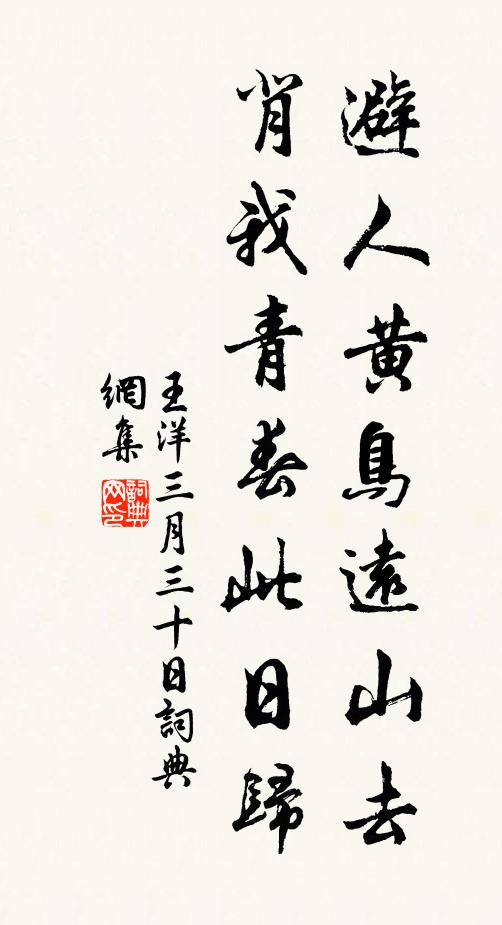 避人黃鳥遠山去
背我青春此日歸
王洋三月三十日詞典
網集
詞典網印